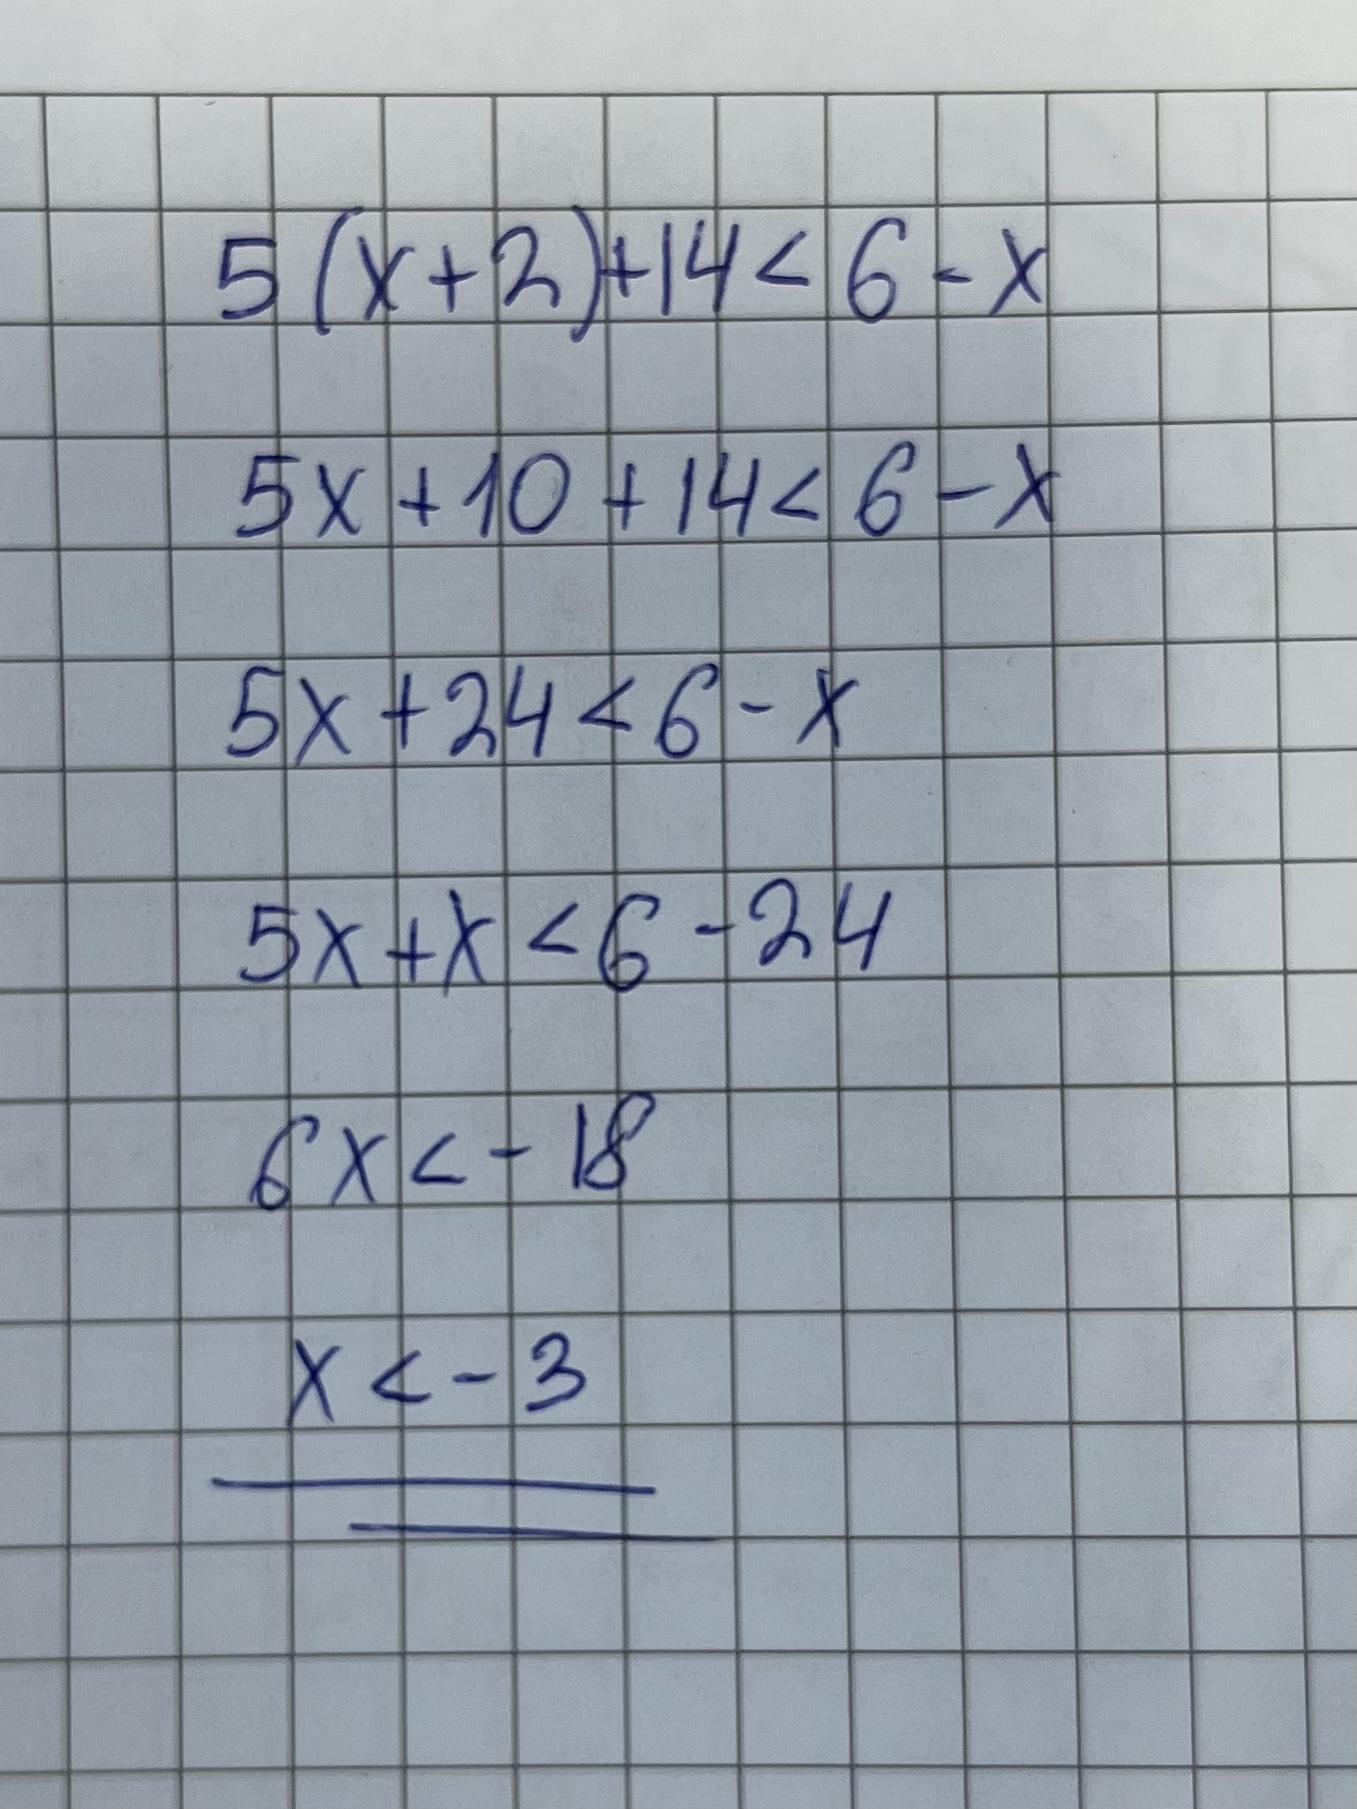 5(x+2)+14<6-x
5x+10+14<6-x
5x+24<6-x
5x+x<6-24
6x<-18
x<-3